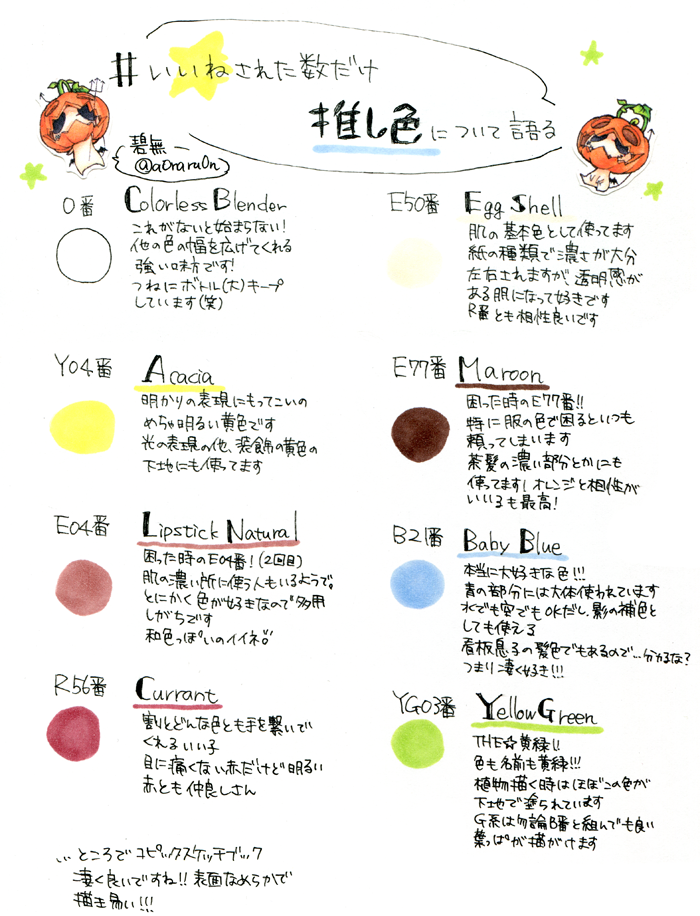 #いいねされた数だけ
推し色について語る
碧無
@a0raru0n
0番 Colorless Blender
これがないと始まらない!
他の色の幅を広げてくれる
強い味方です!
つねにボトル(大)キープ
しています(笑)
Y04番 Acacia
明かりの表現にもってこいの
めちゃ明るい黄色です
光の表現の他、装飾の黄色の
下地にも使ってます
E04番 Lipstick Natural
困った時のE04番!(2回目)
肌の濃い所に使う人もいるようで。
とにかく色が好きなので多用
しがちです
和色っぽいのイイネ!
R56番 Currant
割とどんな色とも手を繋いで
くれるいい子
目に痛くない赤だけど明るい
赤とも仲良しさん
E50番 Egg Shell
肌の基本色として使ってます
紙の種類で濃さが大分
左右されますが、透明感が
ある肌になって好きです
R番とも相性良いです
E77番 Maroon
困った時のE77番!!
特に服の色で困るといつも
頼ってしまいます
茶髪の濃い部分とかにも
使ってます!オレンジと相性が
いいのも最高!
B21番 Baby Blue
本当に大好きな色!!!
青の部分には大体使われています
水でも空でもOKだし、影の補色と
しても使える
看板息子の髪色でもあるので…分かるな?
つまり凄く好き!!!
YG03番 Yellow Green
THE☆黄緑!!
色も名前も黄緑!!!
植物描く時はほぼこの色が
下地で塗られています
G系は勿論B番と組んでも良い
葉っぱが描がけます
…ところでコピックスケッチブック
凄く良いですね!!表面なめらかで
描き易い!!!